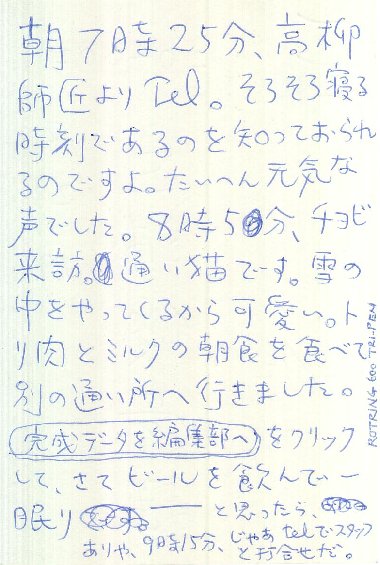 朝7時25分、高柳
師匠よりTel。そろそろ寝る
時刻であるのを知っておられ
るのですよ。たいへん元気な
声でした。8時50分、チョビ
来訪。通い猫です。雪の
中をやってくるから可愛い。ト
リ肉とミルクの朝食を食べて
別の通い所へ行きました。
完成データを編集部へをクリック
して、さてビールを飲んで一
眠り
──と思ったら、
ありゃ、9時15分、じゃあtelでスタッフ
と打合せだ。
ROTRING 600 TRI-PEN